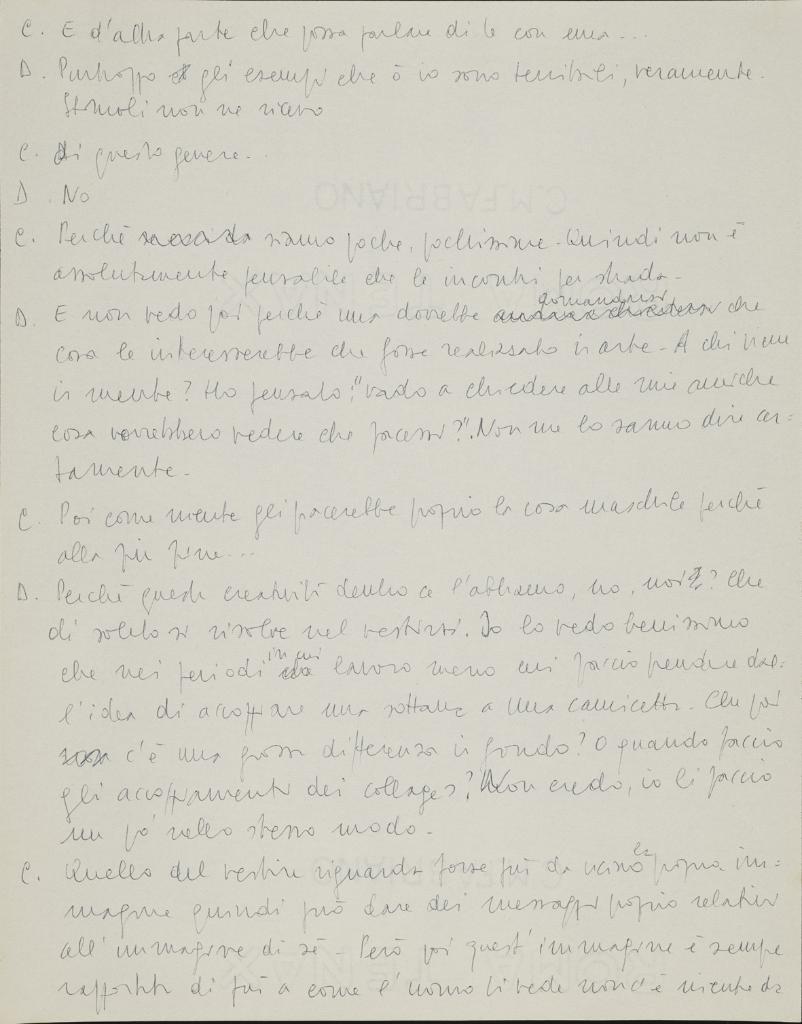 C. E d'altra parte che possa parlare di te con una...
D. Purtroppo gli esempi che ò io sono terribili, veramente.
Stimoli non ne ricevo
C. Di questo genere...
D. No
C. Perché siamo poche, pochissime. Quindi non è
assolutamente pensabile che le incontri per strada.
D. E non vedo poi perché una dovrebbe domandarsi che
cosa le interesserebbe che fosse realizzato in arte. A chi viene
in mente? Ho pensato: "vado a chiedere alle mie amiche
cosa vorrebbero vedere che facessi?". Non me lo sanno dire cer=
tamente.
C. Poi come niente gli piacerebbe proprio la cosa maschile perché
alla fin fine...
D. Perché questa creatività dentro ce l'abbiamo, no, noi? Che
di solito si risolve nel vestirsi. Io lo vedo benissimo
che nei periodi in cui lavoro meno mi faccio prendere dal=
l'idea di accoppiare una sottana a una camicetta. Che poi
c'è una grossa differenza in fondo? O quando faccio
gli accoppiamenti dei collages? Non credo, io li faccio
un po' nello stesso modo.
C. Quello del vestire riguarda forse più da vicino la propria im=
magine quindi può dare dei messaggi proprio relativi
all'immagine di sé. Però poi quest'immagine è sempre
rapportata di più a come l'uomo ti vede non c'è niente da